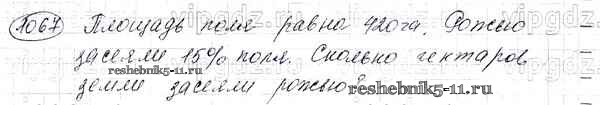 1067 Площадь поля равна 420га. Рожью
засеяли 15% поля. Сколько гектаров
reshebnik5-11.ru
земли засеяли рожью?
reshebnik5-11.ru